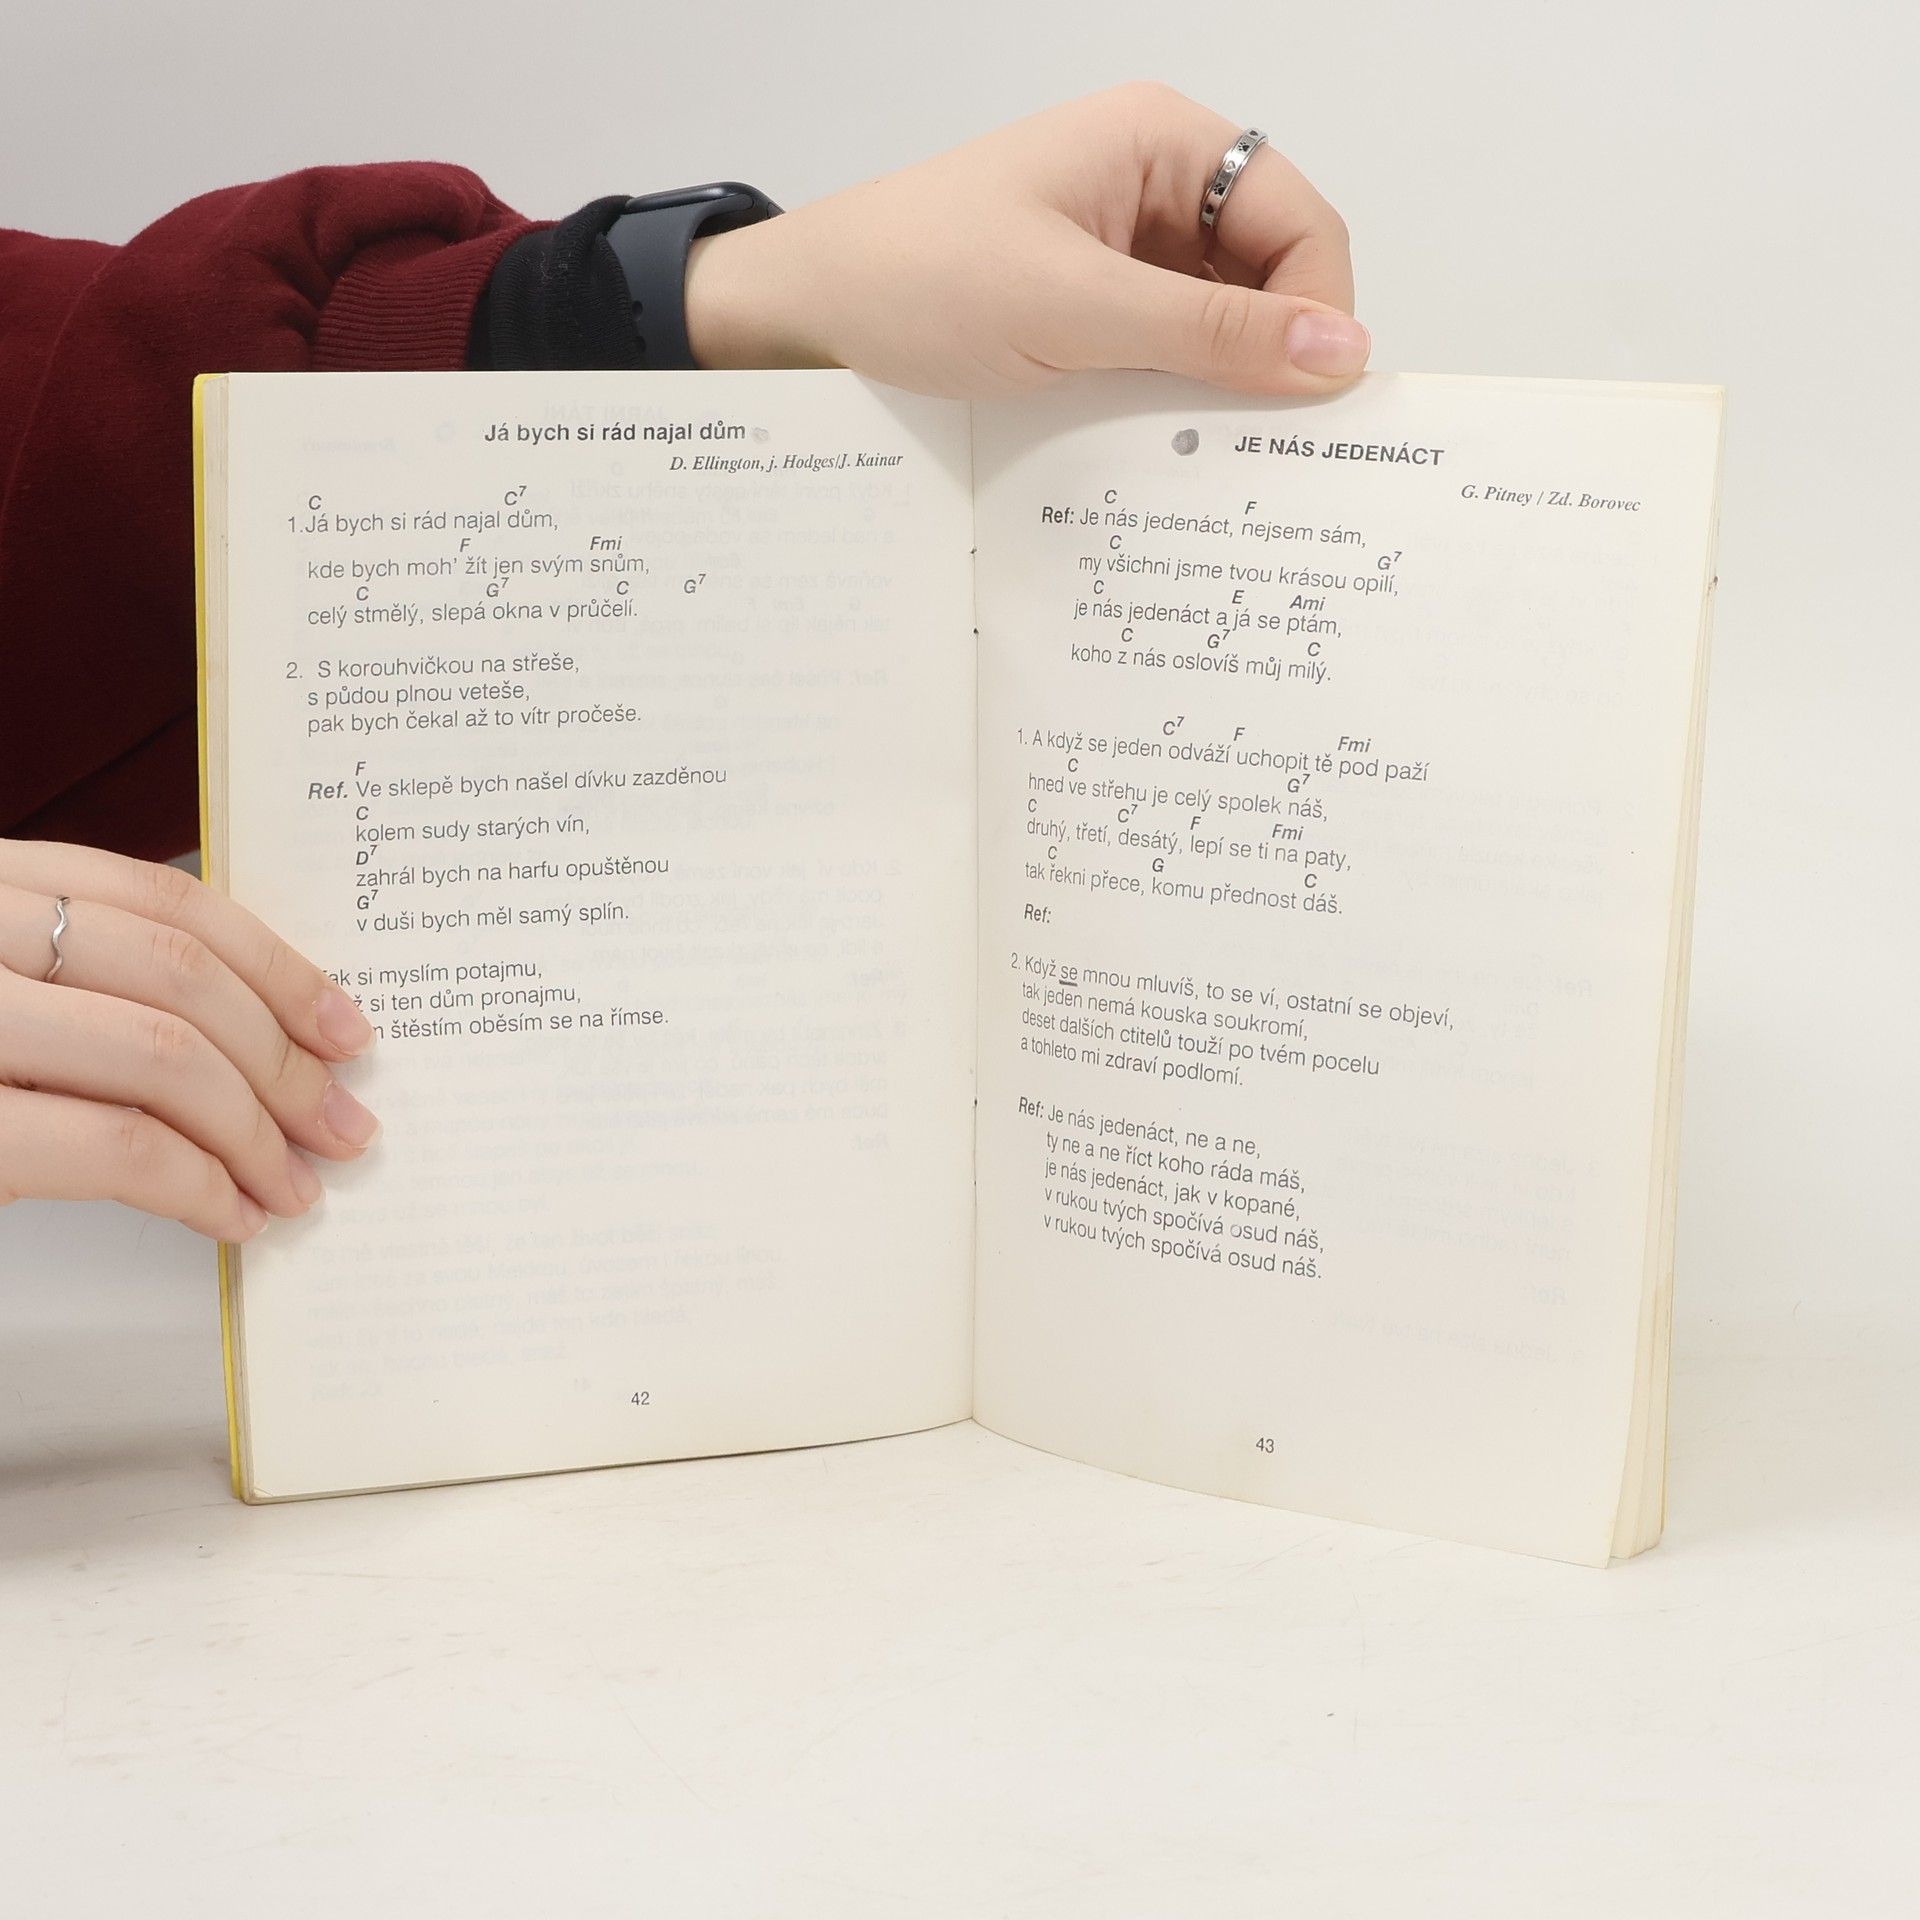 Já bych si rád najal dům
D. Ellington, j. Hodges/J. Kainar
C C7
1.Já bych si rád najal dům,
F Fmi
kde bych moh' žít jen svým snům,
C G7 C G7
celý stmělý, slepá okna v průčelí.
2. S korouhvičkou na střeše,
s půdou plnou veteše,
pak bych čekal až to vítr pročeše.
F
Ref. Ve sklepě bych našel dívku zazděnou
C
kolem sudy starých vín,
D7
zahrál bych na harfu opuštěnou
G7
v duši bych měl samý splín.
si myslím potajmu,
si ten dům pronajmu,
štěstím oběsím se na římse.
42
JE NÁS JEDENÁCT
G. Pitney / Zd. Borovec
C F
Ref: Je nás jedenáct, nejsem sám,
C G7
my všichni jsme tvou krásou opilí,
C E Ami
je nás jedenáct a já se ptám,
C G7 C
koho z nás oslovíš můj milý.
C7 F Fmi
1. A když se jeden odváží uchopit tě pod paží
C G7
hned ve střehu je celý spolek náš,
C C7 F Fmi
druhý, třetí, desátý, lepí se ti na paty,
C G C
tak řekni přece, komu přednost dáš.
Ref:
2. Když se mnou mluvíš, to se ví, ostatní se objeví,
tak jeden nemá kouska soukromí,
deset dalších ctitelů touží po tvém pocelu
a tohleto mi zdraví podlomí.
Ref: Je nás jedenáct, ne a ne,
ty ne a ne říct koho ráda máš,
je nás jedenáct, jak v kopané,
v rukou tvých spočívá osud náš,
v rukou tvých spočívá osud náš.
43